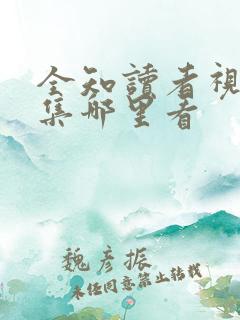 全知讀者視
集哪里看
魏彦振
未任同意禁止转载